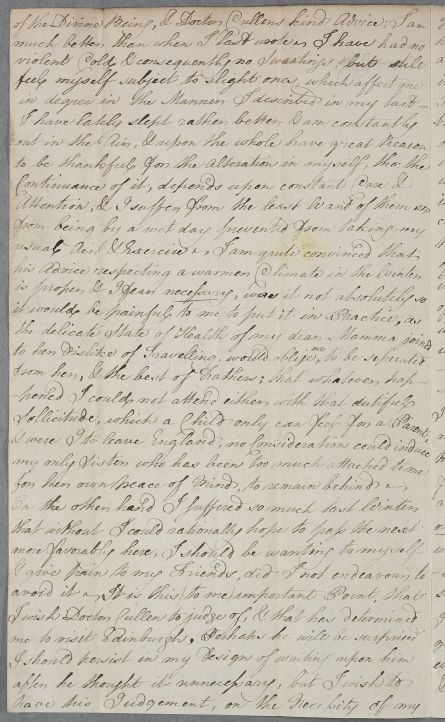 of the Divine Being, & Doctor Cullens kind Advice; I am
much better than when I last wrote. I have had no
violent Cold, & consequently no Sweatings, but still
feel myself subject to slight ones, which affect me
in degree in the Manner I described in my last.
I have lately slept rather better & am constantly
out in the Air, & upon the whole have great Reason
to be thankful for the Alteration in myself, tho' the
Continuance of it, depends upon constant Care &
Attention, & I suffer from the least Want of them or
from being by a wet day prevented from taking my
usual Air & Exercise. I am quite convinced that
his Advice respecting a warmer Climate in the Winter
is proper & I fear necessary, was it not absolutely so
it would be painful to me to put it in Practice, as
the delicate State of Health of my dear Mamma joined
to her Dislike of Travelling, would oblige me to be seperated
from her, & the best of Fathers; that whatever hap-
pened I could not attend either with that dutiful
Sollicitude, which a Child only can feel for a Parent,
& were I to leave England, no Consideration could induce
my only Sister who has been too much attached to me
for her own Peace of Mind, to remain behind.
On the other hand I suffered so much last Winter
that without I could rationally hope to pass the next
more favorably here, I should be wanting to myself
& give pain to my Friends, did I not endeavour to
avoid it. It is this, to me, important Point, that
I wish Doctor Cullen to judge of, & that has determined
me to visit Edinburgh. Perhaps he will be surprised
I should persist in my Design of waiting upon him
after he thought it unnecessary, but I wish to
have his Judgement, on the Necessity of my